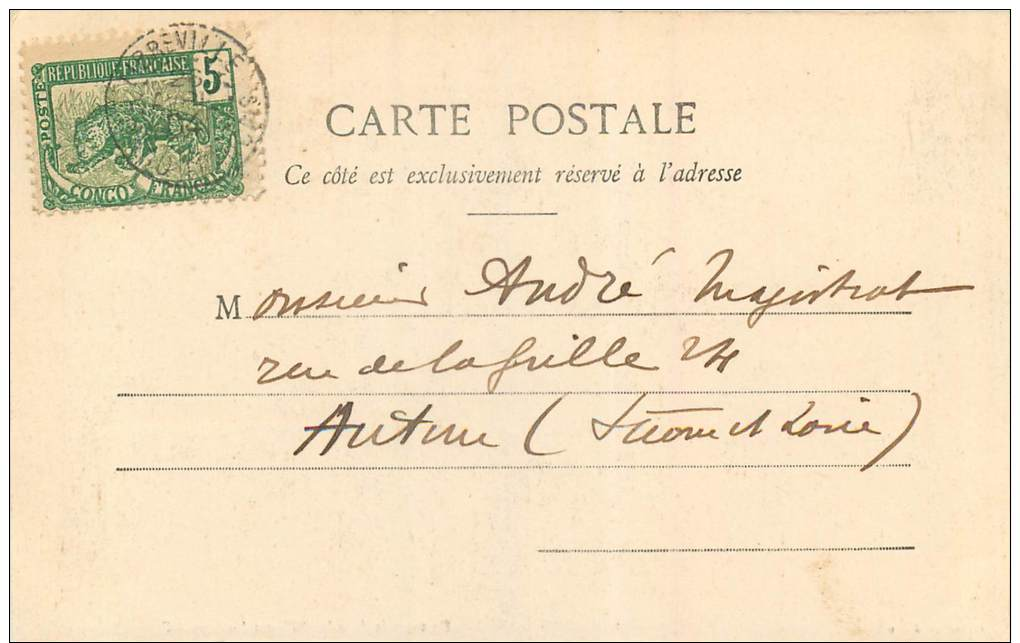 RÉPUBLIQUE FRANÇAISE 5
POSTE
CONGO FRANÇAIS
LIBREVILLE
CARTE POSTALE
Ce côté est exclusivement réservé à l'adresse
Monsieur André Magistrat
rue de la Grille 24
Autun (Saone et Loire)